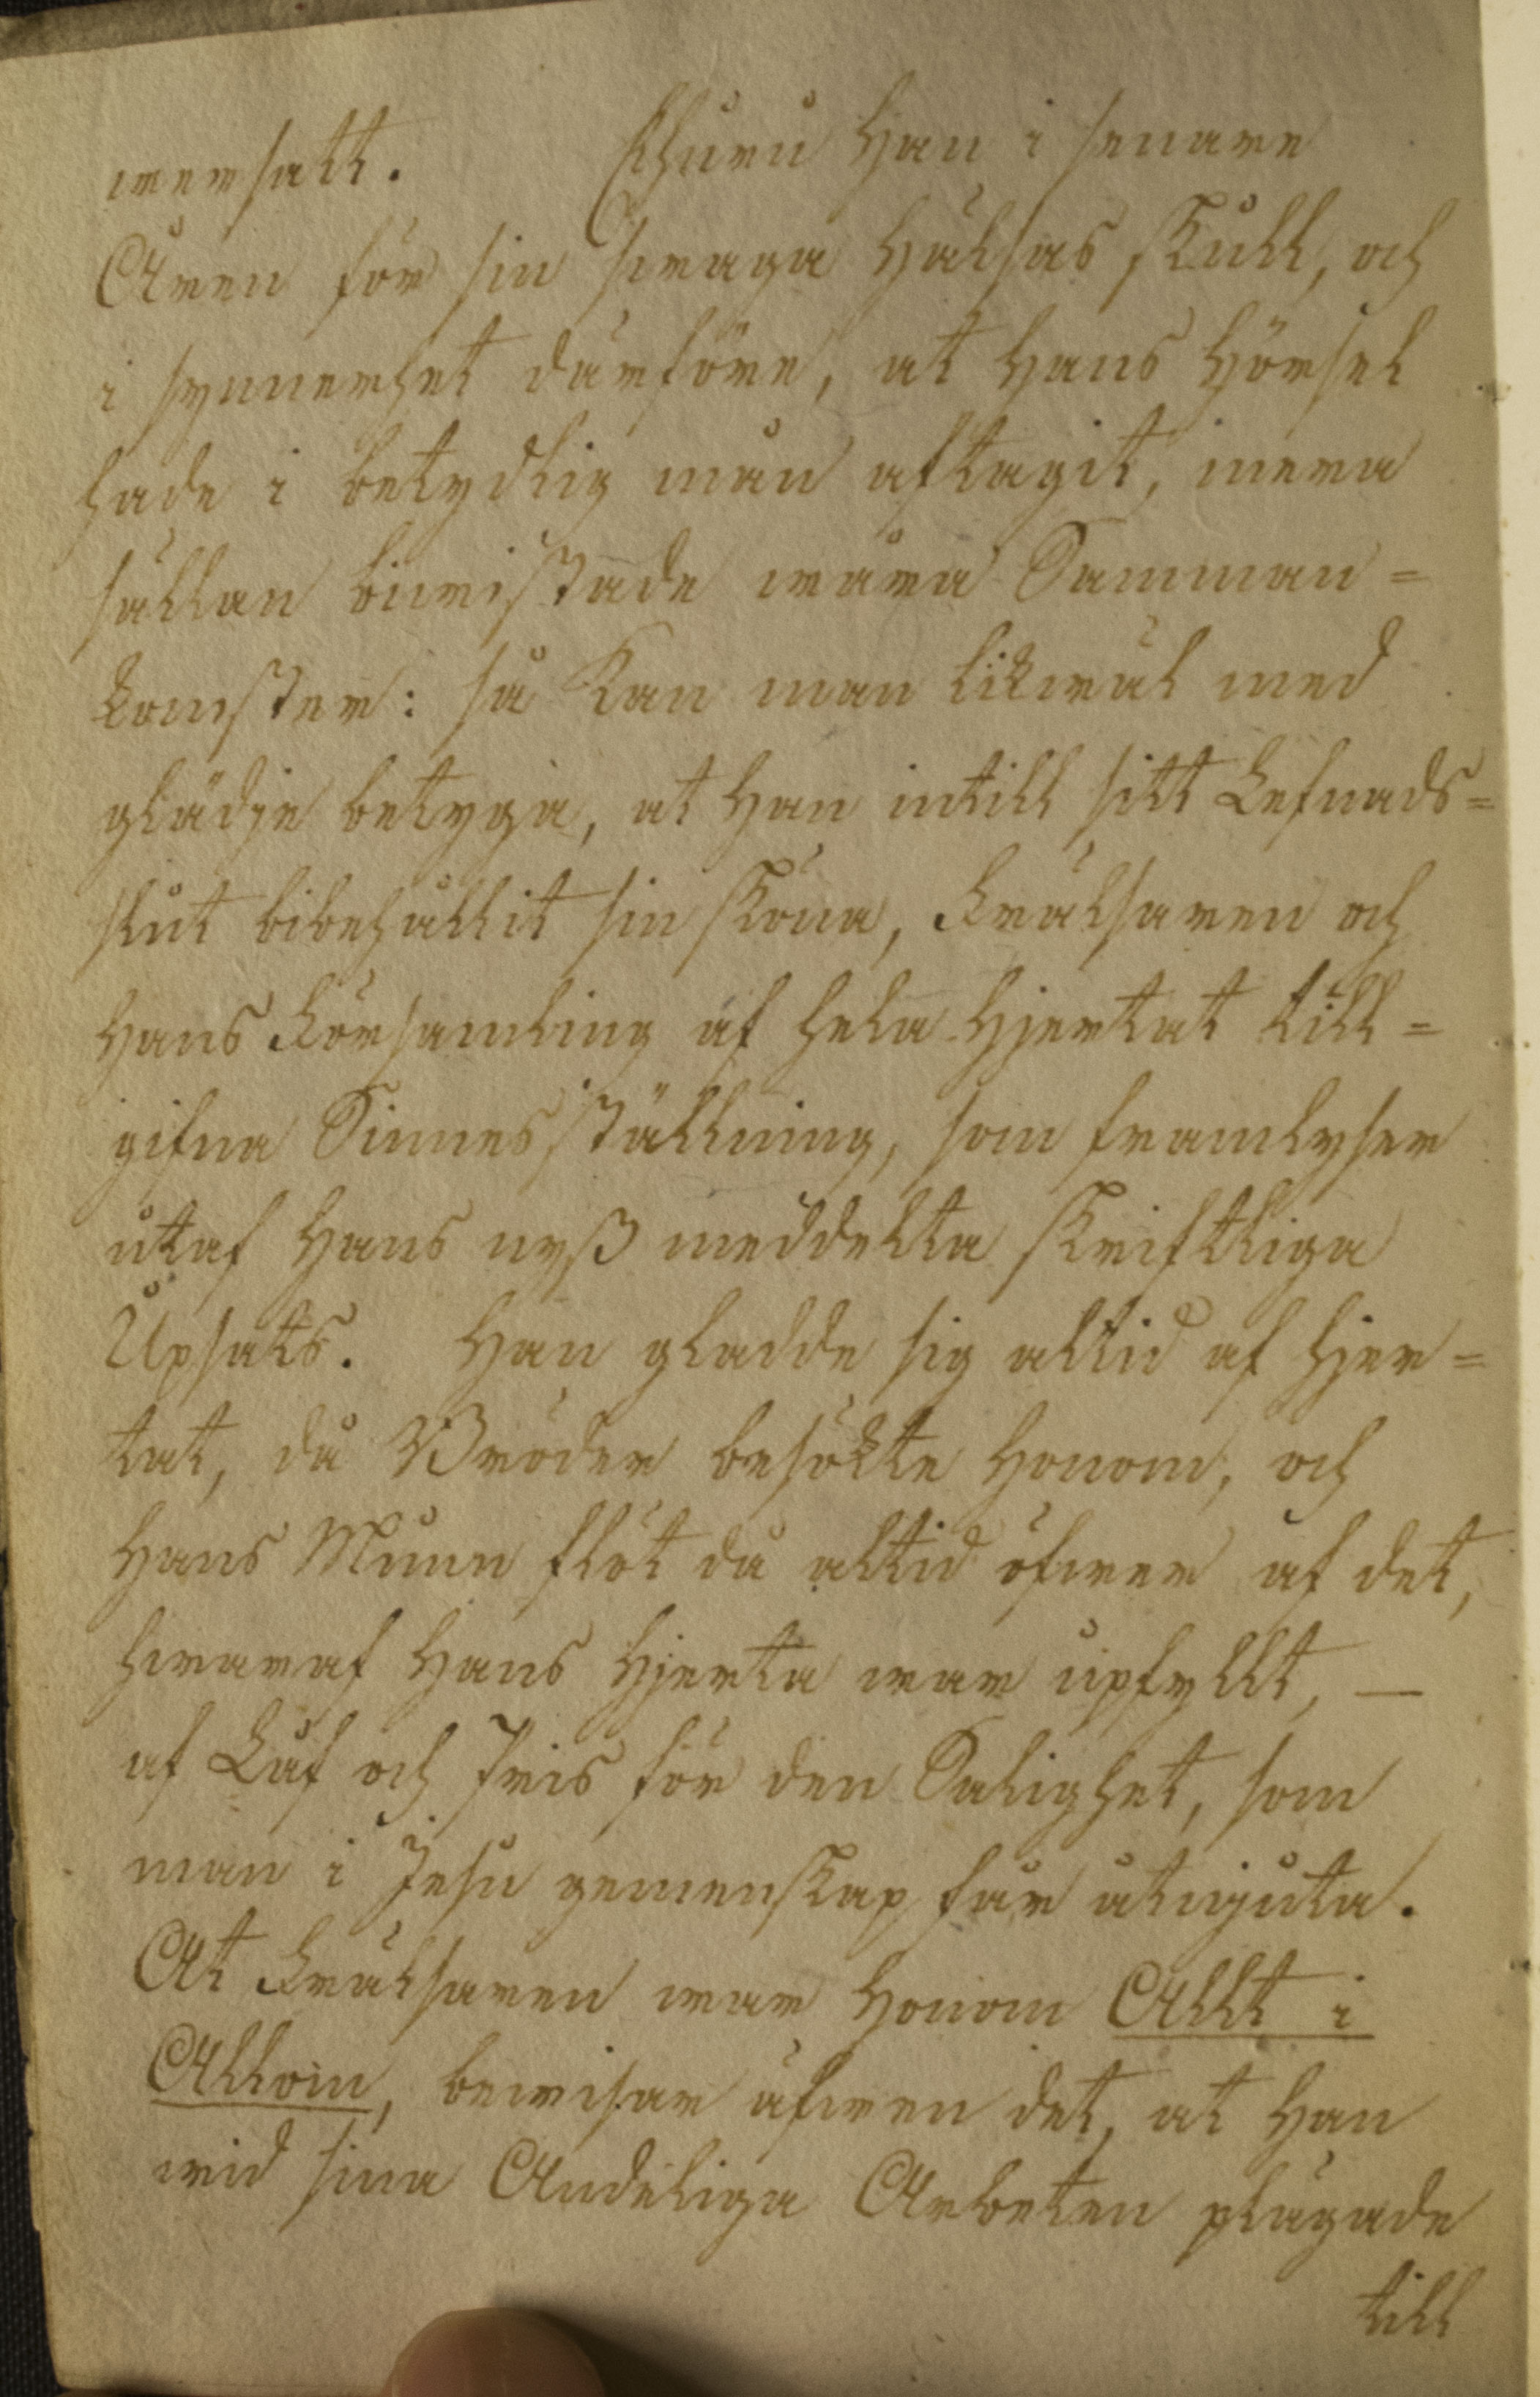 wersatt. Ehuru Han i senare
Åren för sin swaga Hälsas skull, och
i synnerhet därföre, at Hans Hörsel
hade i betydlig mån aftagit, mera
sällan biwistade wåra Samman=
komster: så kan man likwäl med
glädje betyga, at Han intill sitt Lefnads=
slut bibehållit sin sköna, Frälsaren och
Hans Församling af hela Hjertat till=
gifna Sinnesställning, som framlyser
utaf Hans nyß meddelta skriftliga
Upsats. Han gladde sig altid af Hjer=
tat, då Bröder besökte Honom, och
Hans Munn flöt då altid öfwer af det,
hwaraf Hans Hjerta war upfyllt, —
af Låf och Pris för den Salighet, som
man i Jesu gemenskap får åtnjuta.
At Frälsaren war Honom Allt i
Allom, bewisar äfwen det, at Han
wid sina Andeliga Arbeten plägade
till